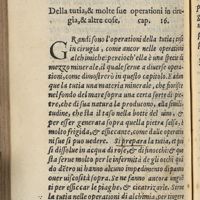 Della tutia, & molte sue operationi in cirugia, & altre cose. cap. 16.
GRandi sono l'operationi della tutia, si
in cirugia, come ancor nelle operationi
alchimiche: percioch'ella è una specie
mezzo minerale, il quale serue a diuerse operationi,
come dimostrerò in questo capitolo. è adunque
la tutia una materia minerale, che si
nel fumo del metallo sopra una certa
tre, che di sua natura la producono, alla similitudine,
che sta il taso nelle botti del uino, &
per esser generata sopra quella pietra salsa, è
molto frigida, & essiccante, come dalle operationi
sue si può uedere. Si prepara la tutia, &
si dissolue in acqua di rose, & si
sta serue molto per l'infermità de gli occhi
do che dentro ui hanno alcuno impedimento di panni
ouer
ti per essiccar le piaghe, & cicatrizarle. Serue
la tutia nelle operationi di alchimia, per